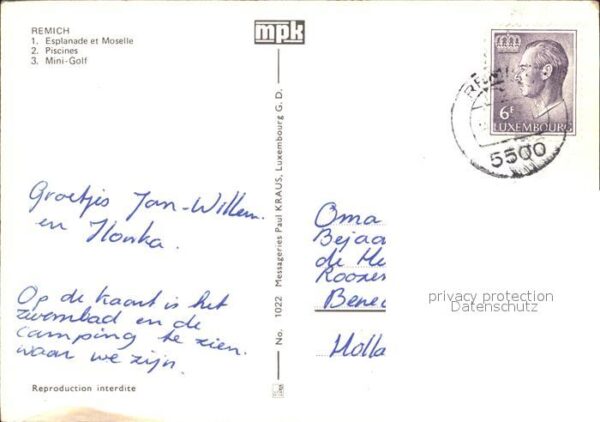 REMICH
1. Esplanade et Moselle
2. Piscines
3. Mini-Golf
mpk
REMI
5500
6F
LUXEMBOURG
Groetjes Jan-Willem
en Ilonka.
Op de kaart is het
zwembad en de
camping te zien.
waar we zijn.
Reproduction interdite
No. 1022 Messageries Paul KRAUS, Luxembourg G. D.
Oma
Bejaa
de He
Roozen
Bene
Holla
privacy protection
Datenschutz